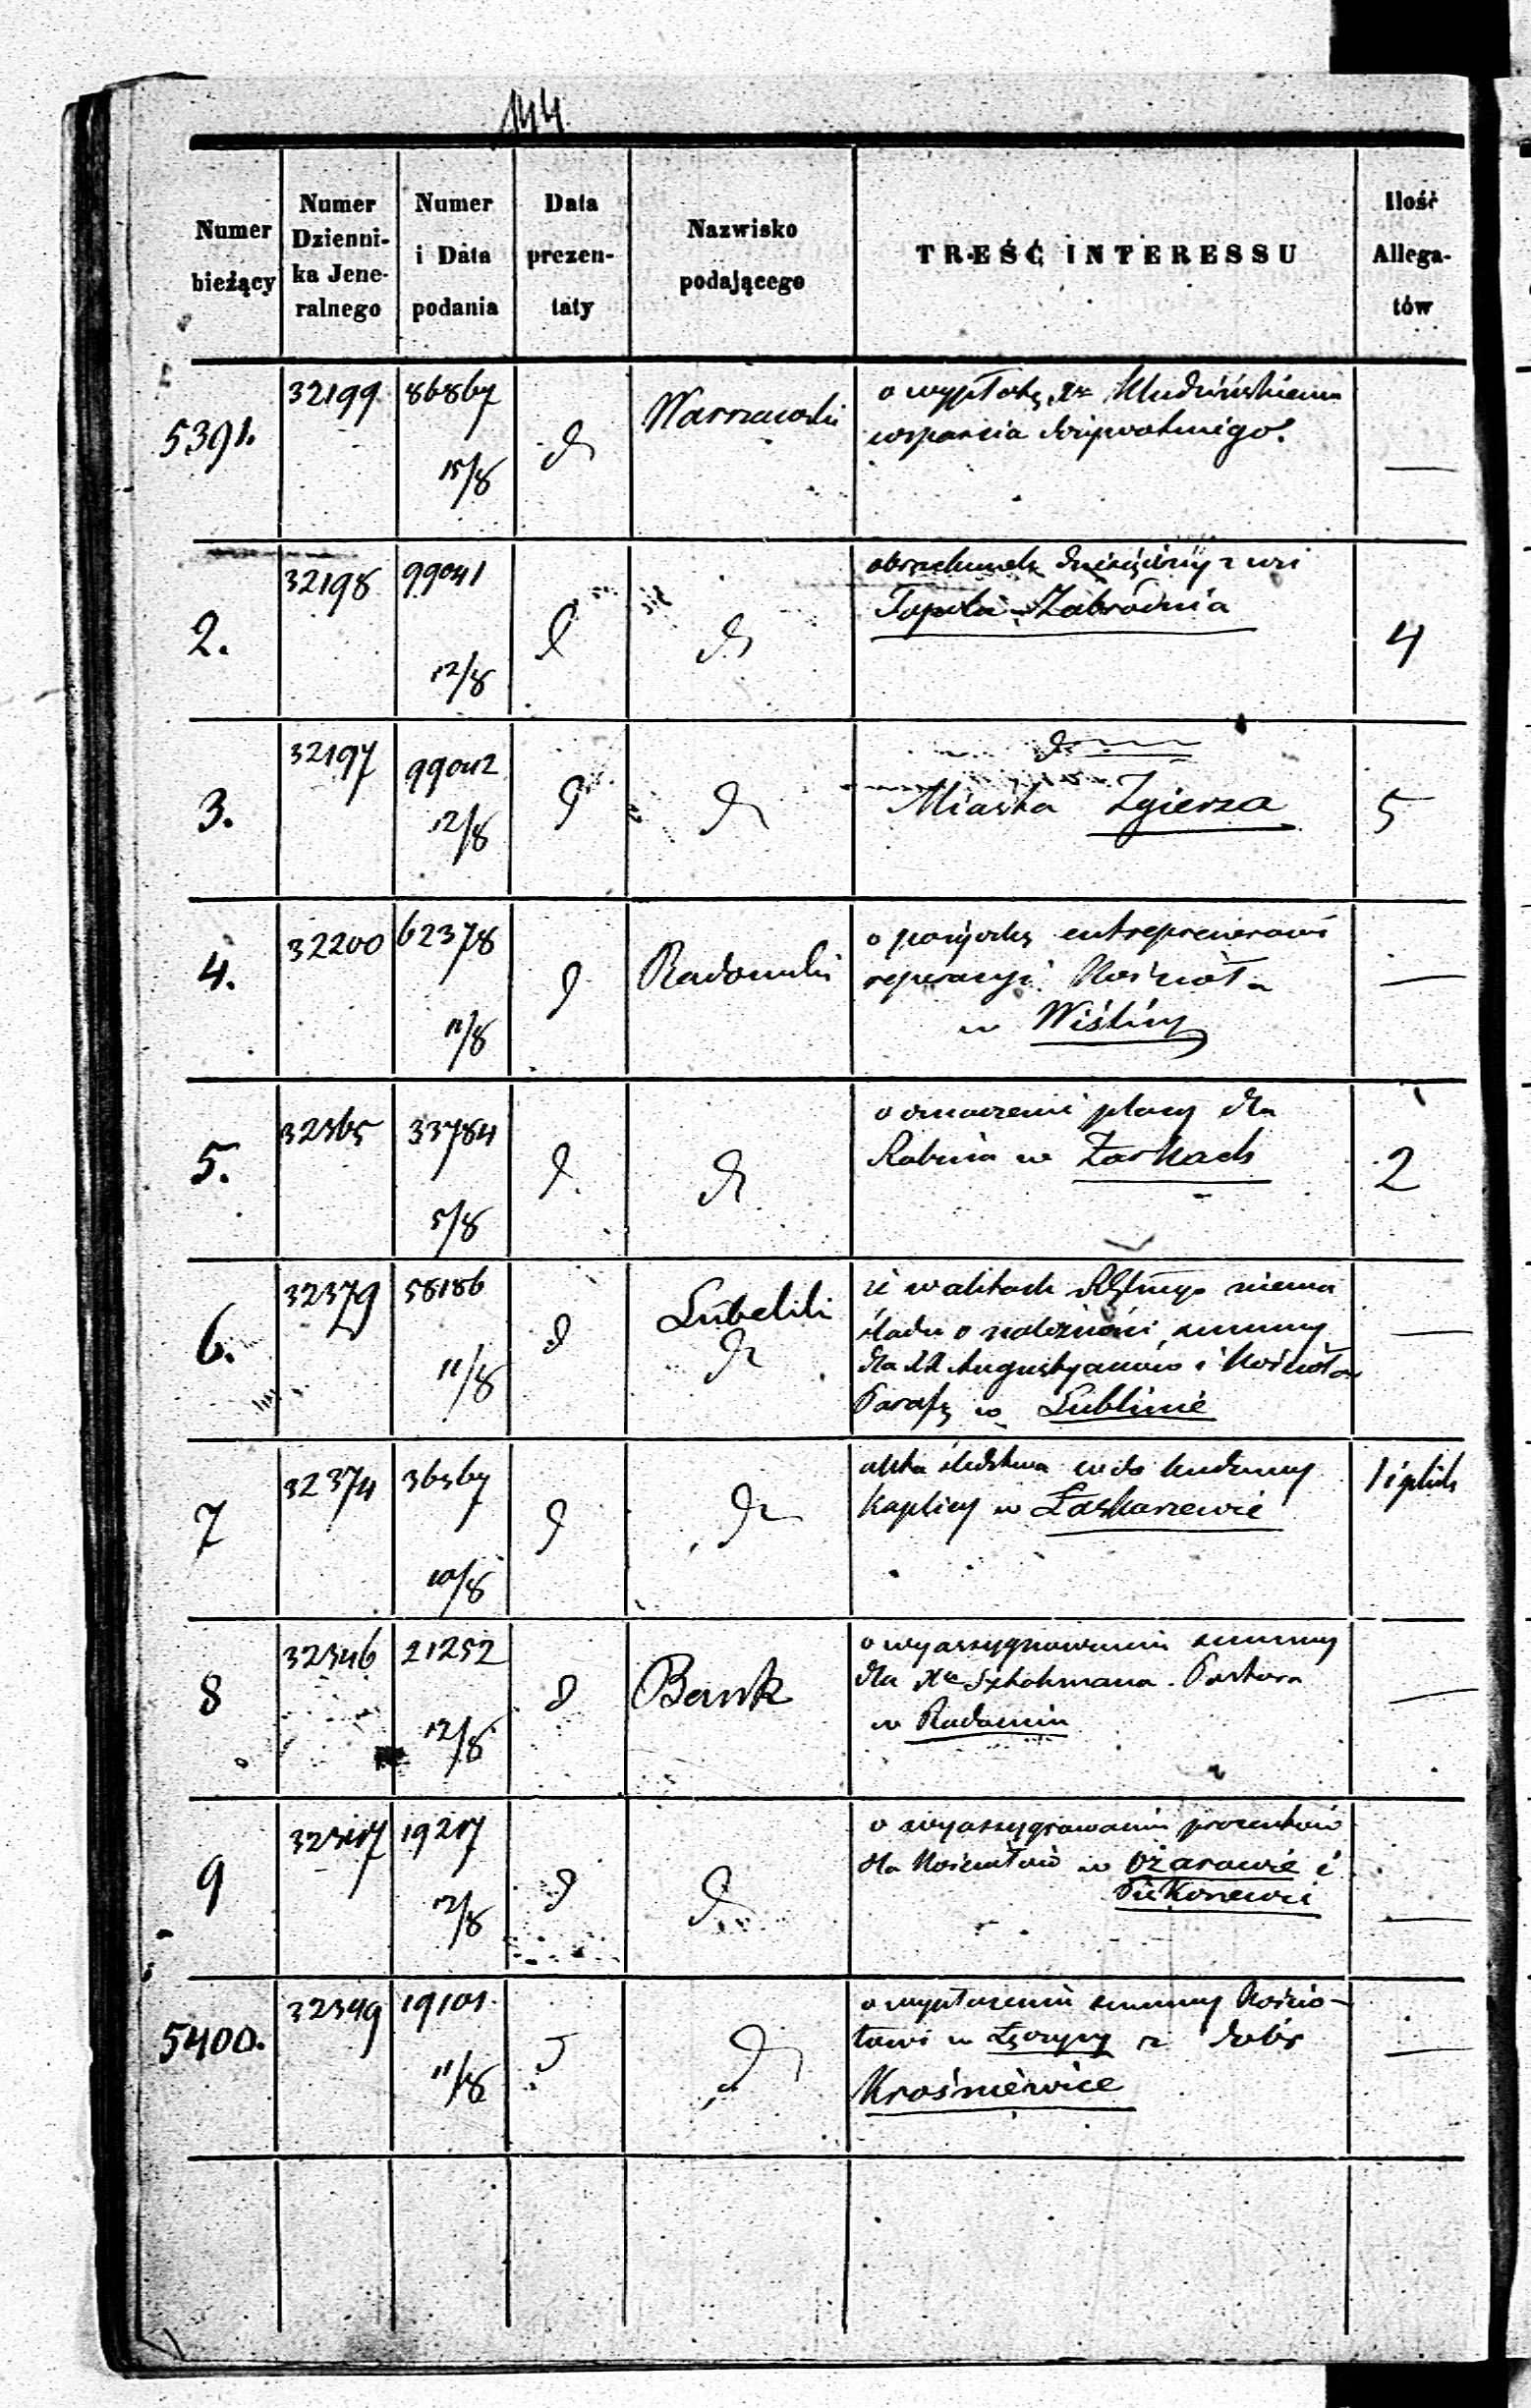 144
Numer bieżący
Numer Dzienni- ka Jene- ralnego
Numer i Data podania
Data prezen- taty
Nazwisko podającego
TREŚĆ INTERESSU
Ilość Allega- tów
5391. 32199 86867 15/8 d Warszawski
o wypłatę Xu
wsparcia dożywotniego.
—
2. 32198 99041 12/8 d d
obrachunek dziesięciny z wsi
Topola Zabrodnia
4
3. 32197 99042 12/8 d d
d
Miasta Zgierza
5
4. 32200 62378 11/8 d Radomski
o pożyczkę entreprenerowi
reperacyi Kościoła
w Wiślicy
—
5. 32365 33784 5/8 d d
o oznaczenie płacy dla
Rabina w Żarkach
2
6. 32379 58186 11/8 d Lubelski d
że w aktach niema
śladu o należności summy
dla XX Augustyanów i Kościoła
Paraf. w Lublinie
—
7 32374 36567 10/8 d d
akta śledztwa wzdo budowy
Kaplicy w Łaskarzewie
1 i plik
8 32346 21252 12/8 d Bank
o wyassygnowanie summy
dla Xa Pastora
w Radomiu
—
9 32347 19217 12/8 d d
o wyassygnowanie procentów
dla Kościołów w Ożarowie i
Piekoszewie
—
5400. 32349 19101 11/8 d d
o wypłacenie summy Kościo-
łowi w Łęczycy z dóbr
Krośniewice
—